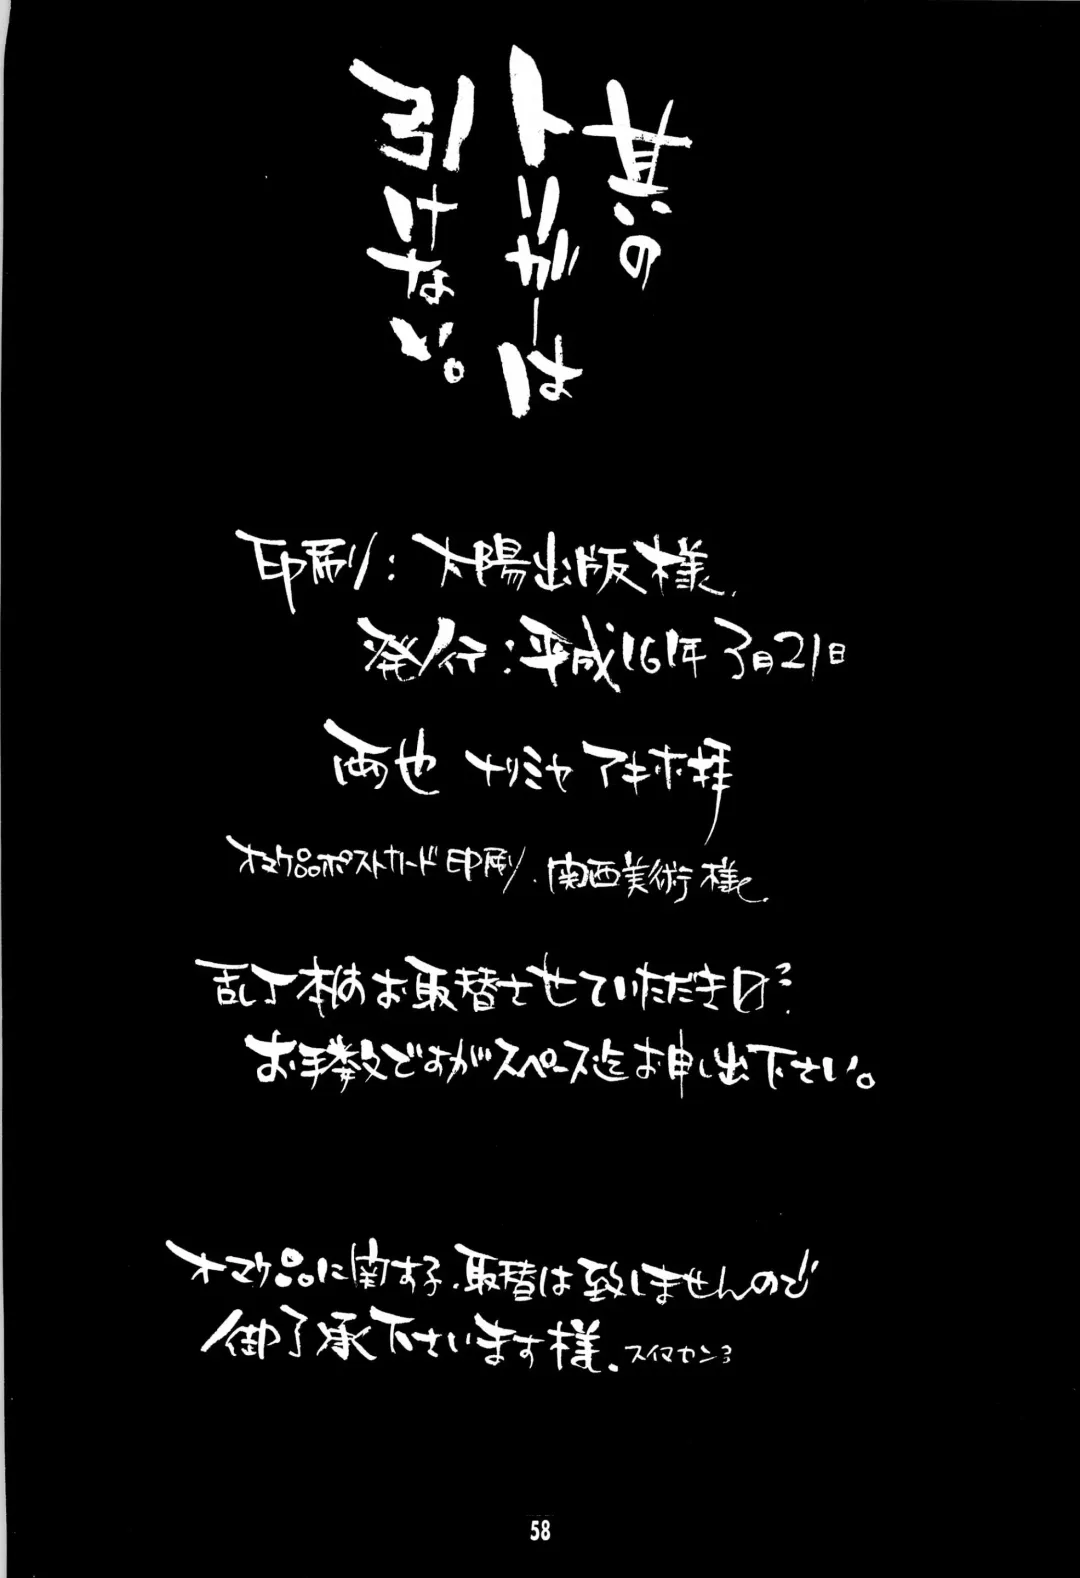 其の
トリガーは
引けない。
印刷り:太陽出版様.
発行:平成16年3月21日
両也 ナリミヤ アキホ拝
オマケ品ポストカード印刷り.関西美術様.
乱丁本はお取替させていただき〼?
お手数ですがスペース迄お申し出下さい。
オマケ品に関する.取替は致しませんので
御了承下さいます様.スイマセンヨ
58